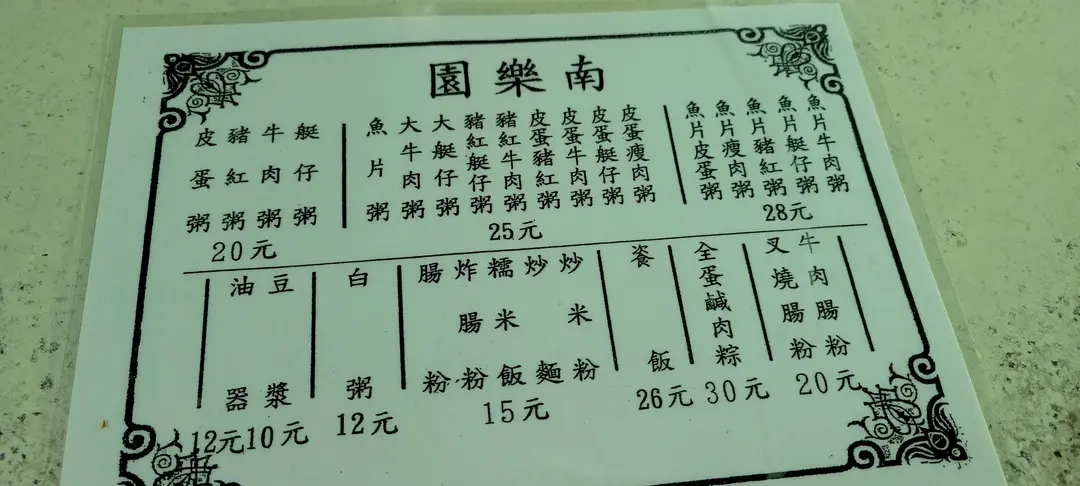 南樂園
魚片牛肉粥
魚片艇仔粥
魚片豬紅粥
魚片瘦肉粥
魚片皮蛋粥
28元
皮蛋瘦肉粥
皮蛋艇仔粥
皮蛋牛肉粥
皮蛋豬紅粥
豬紅牛肉粥
豬紅艇仔粥
大艇仔粥
大牛肉粥
魚片粥
25元
艇仔粥
牛肉粥
豬紅粥
皮蛋粥
20元
牛肉腸粉
叉燒腸粉
20元
全蛋鹹肉粽
30元
餈飯
26元
炒米粉
炒麵
糯米飯
炸腸粉
腸粉
15元
白粥
12元
豆漿
10元
油器
12元